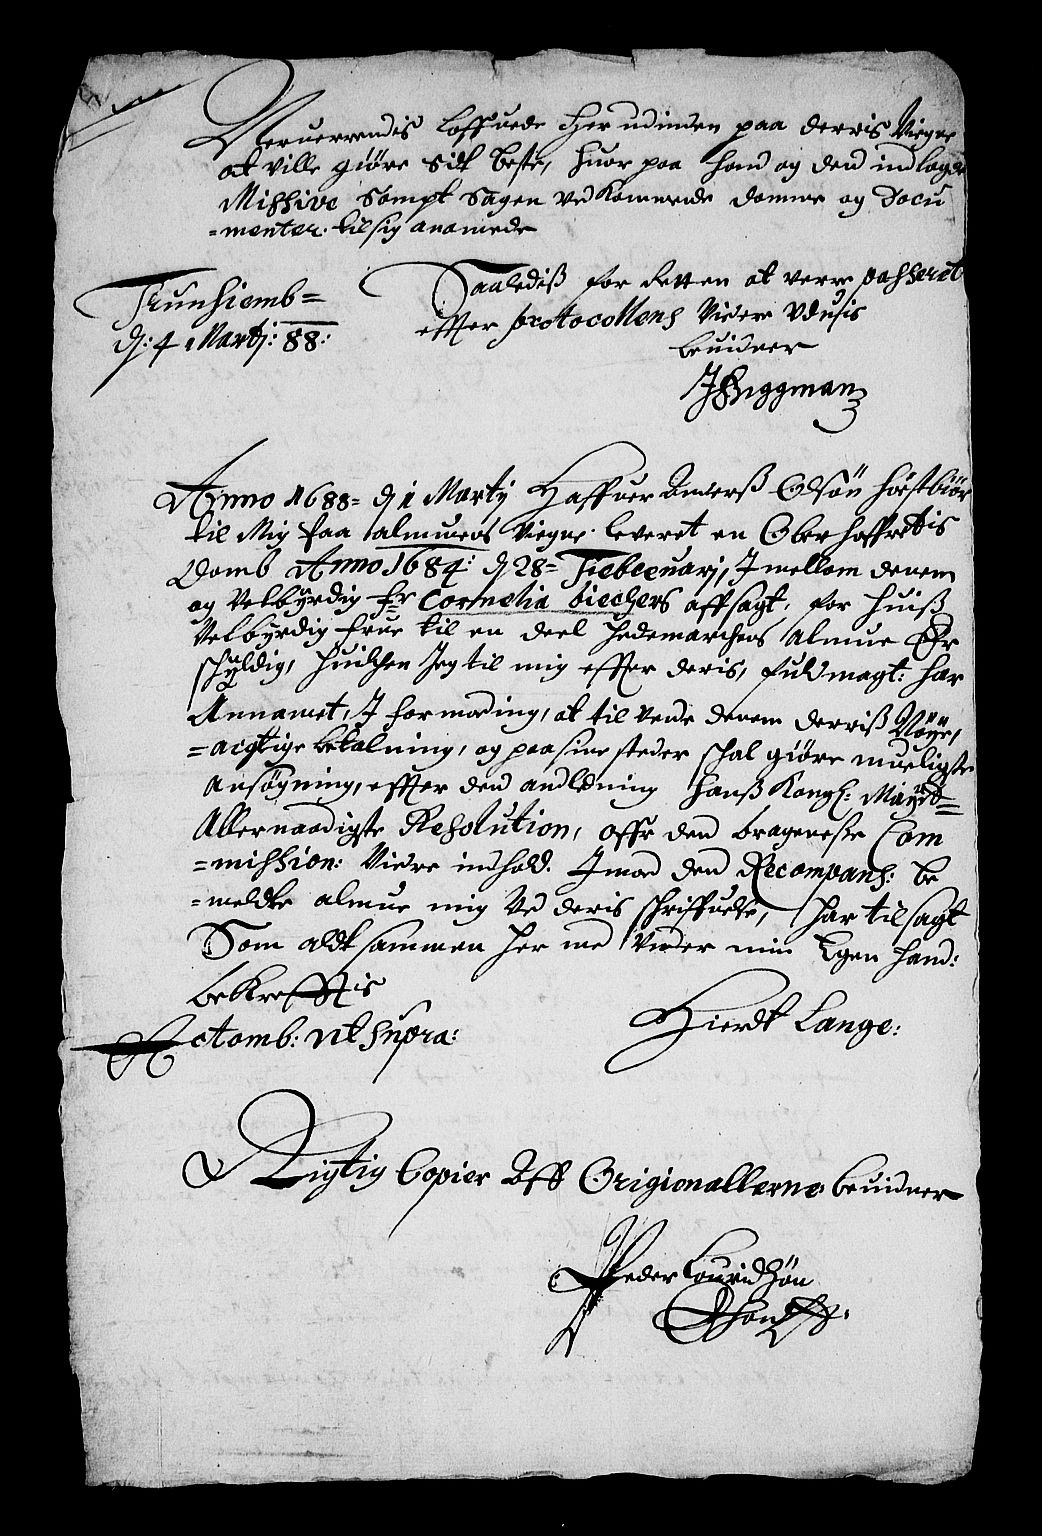 Neruerrendis loffuede her udinden paa derris Viegne
at ville giøre sidt beste, huor paa hand og dend indlagde
Missive Sampt Sagen Vedkomende domme og Docu
=menter. til sig anamede
Saaledis for Retten at verre passeret
Trunhiemb=
effter protocollens Videre Vduis
d: 4 Martj: 88:
beuidner
JBriggman
Anno 1688= d 1 Martij Haffuer Anders Odsøn
til Mig paa almuens Viegne leveret en OberHoffrettis
Domb Anno 1684: d 28= Fiebruarj, Imellom denem
og Velbyrdig fr Cornelia biechers affsagt, for huis
Velbyrdig frue til en deel Hedemarchens almue Er
schyldig, huilchen Jeg til mig effter deris, fuldmagt: har
Annamet, I formoding, at til vende denem derris Nöye,
=acgtige betalning, og paa sine steder schal giøre mueligste
Ansøgning, effter den andledning Hans Kongl: Mayts=
Allernaadigste Resolution, offr den brageneske Com
=mission: Vidre indhold. Imod den Recompans: be
=meldte almue mig Ved deris schriffuelse, har tilsagt
Som aldt sammen her med Vnder min Egen hand:
bekrefftis
Actomb: ut supra: Hierdt Lange:
Rigtig Copier Aff Origionallerne beuidner
Peder Louridsøn